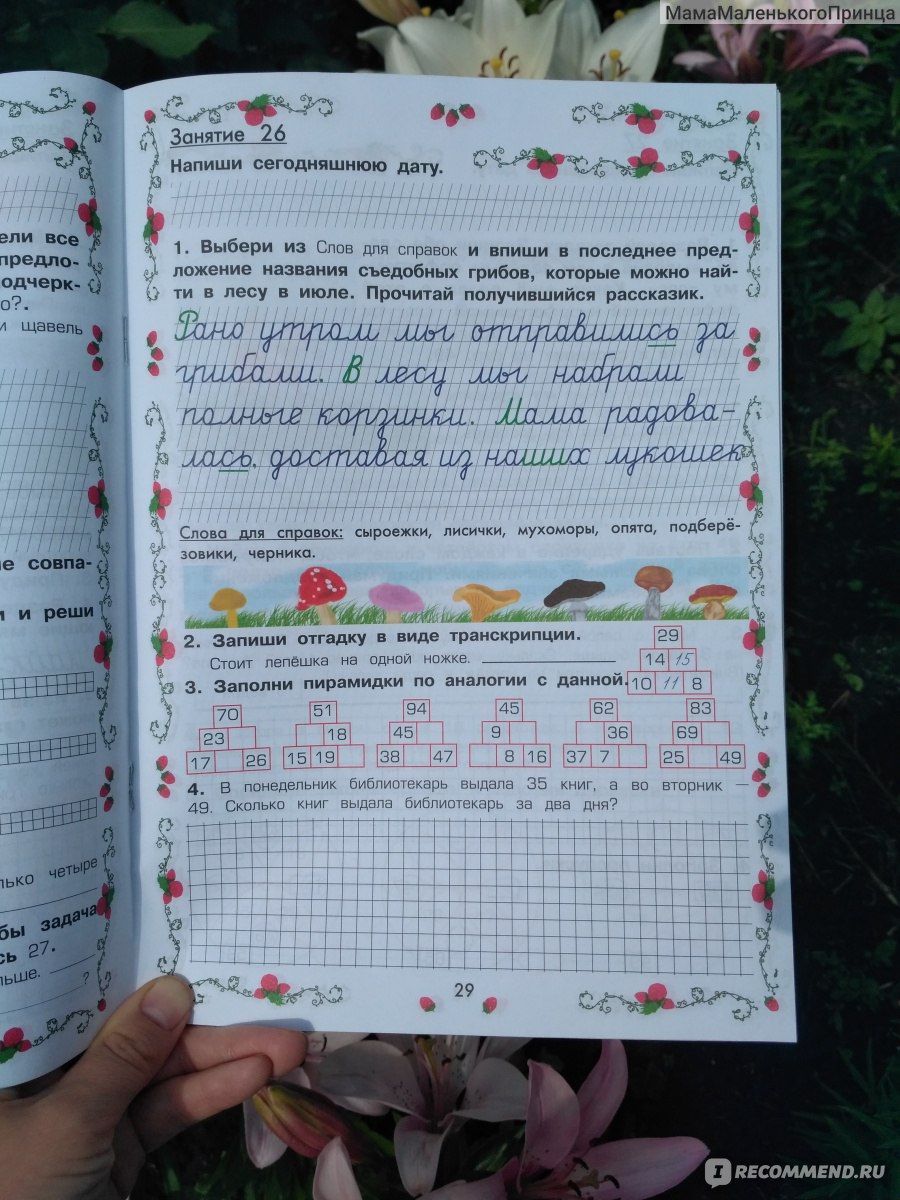 МамаМаленькогоПринца
ели все
предло-
подчерк-
о?.
и щавель
е совпа-
и и реши
лько четыре
бы задача
сь 27.
льше.
?
Занятие 26
Напиши сегодняшнюю дату.
1. Выбери из Слов для справок и впиши в последнее пред-
ложение названия съедобных грибов, которые можно най-
ти в лесу в июле. Прочитай получившийся рассказик.
Рано утром мы отправились за
грибами. В лесу мы набрали
полные корзинки. Мама радова-
лась, доставая из наших лукошек
Слова для справок: сыроежки, лисички, мухоморы, опята, подберё-
зовики, черника.
2. Запиши отгадку в виде транскрипции.
Стоит лепёшка на одной ножке.
29
14 15
10 11 8
3. Заполни пирамидки по аналогии с данной.
70 51 94 45 62 83
23 18 45 9 36 69
17 26 15 19 38 47 8 16 37 7 25 49
4. В понедельник библиотекарь выдала 35 книг, а во вторник —
49. Сколько книг выдала библиотекарь за два дня?
29
I RECOMMEND.RU